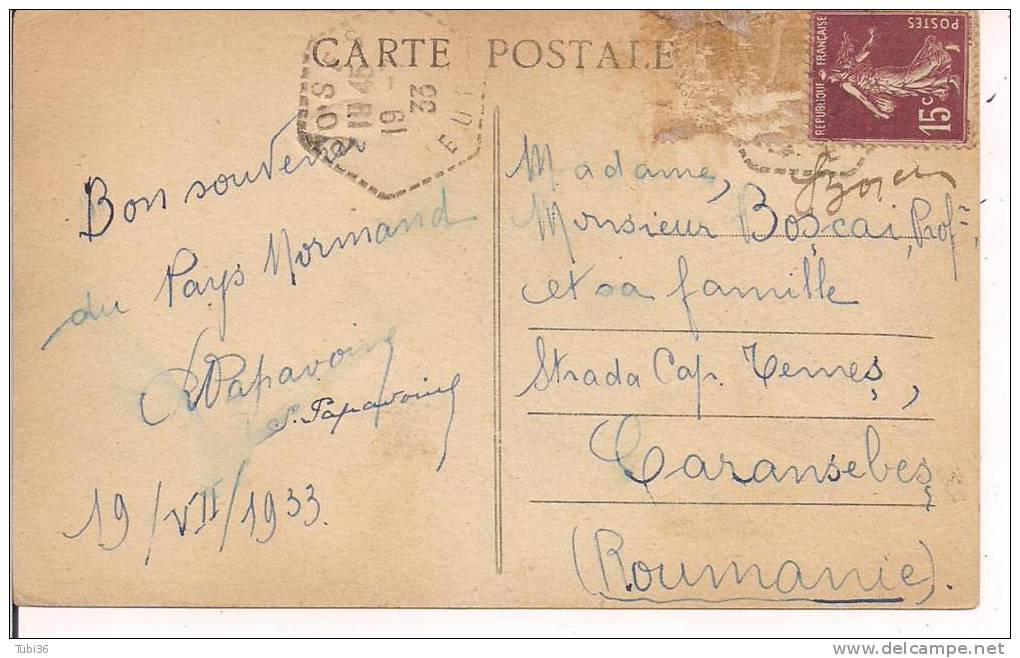 CARTE POSTALE
19 - 33
EU
REPUBLIQUE FRANÇAISE
POSTES
15c
Bon souvenir
du Pays Normand
Papavoine
S. Papavoine
19/VII/1933.
Madame,
Monsieur Boșcai, Prof.,
et sa famille
Strada Cap. Temeș,
Caransebeș
(Roumanie).
Tubi36